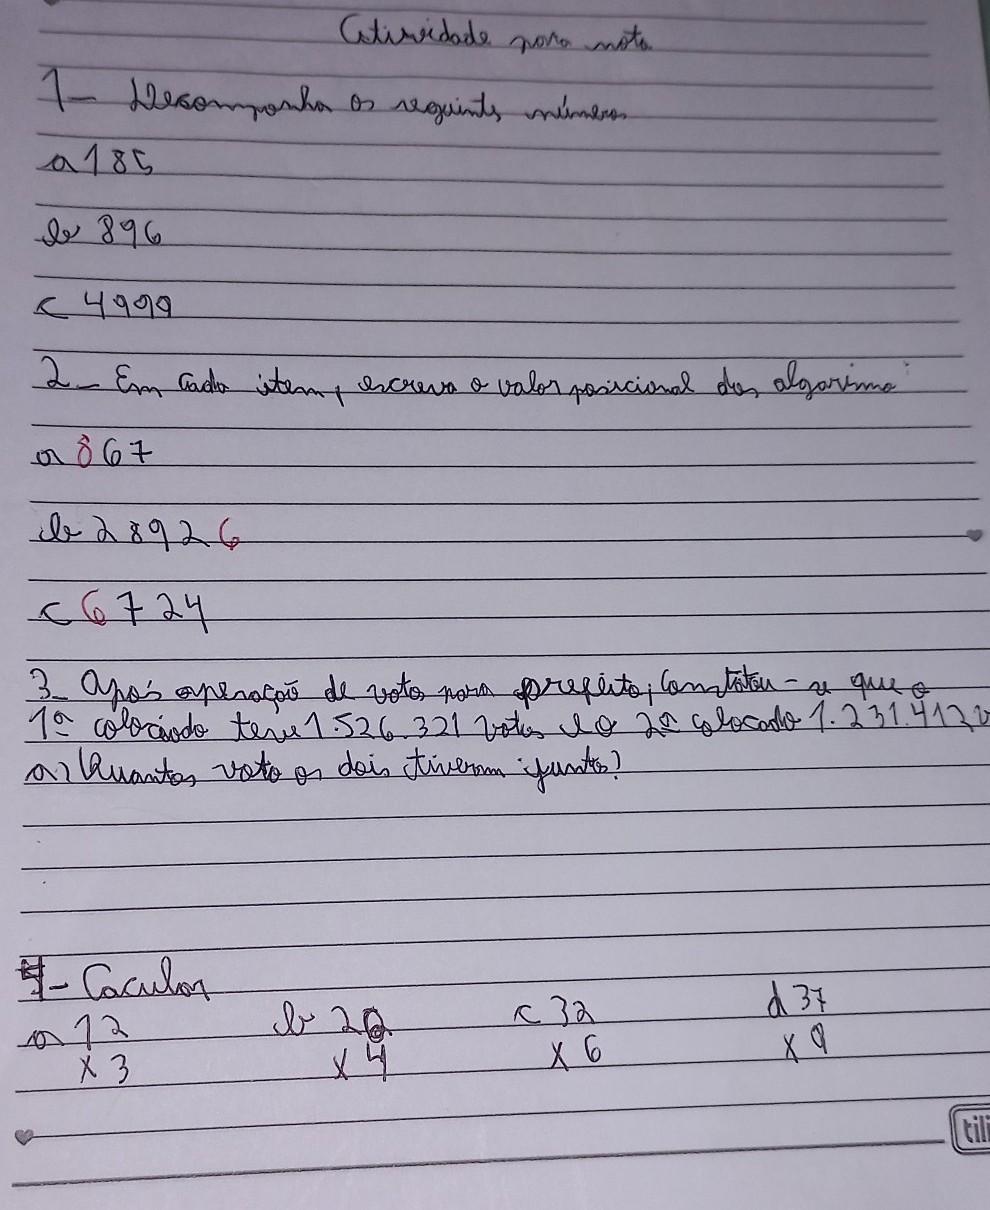 Atividade para nota
1- Decomponha os seguintes números
a 185
b 896
c 4999
2- Em cada item, escreva o valor posicional dos algarismo
a 867
b 28926
c 6724
3- Após apuração de votos para prefeito, constatou-se que o
1º colocado teve 1.526.321 votos e o 2º colocado 1.231.412 v
a) Quantos voto os dois tiveram juntos?
4- Cacular
a 12 b 20 c 32 d 37
x 3 x 4 x 6 x 9
tili